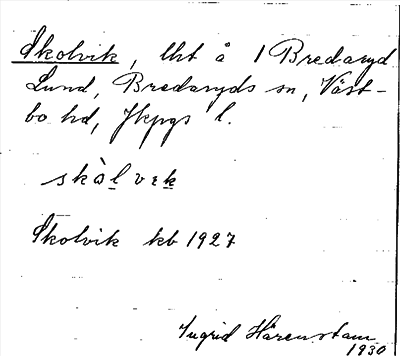 Skolvik, lht å 1 Bredaryd
Lund, Bredaryds sn, Väst-
bo hd, Jkpgs l.
skòl vɩk
Skolvik kb 1927
Ingrid Härenstam
1930